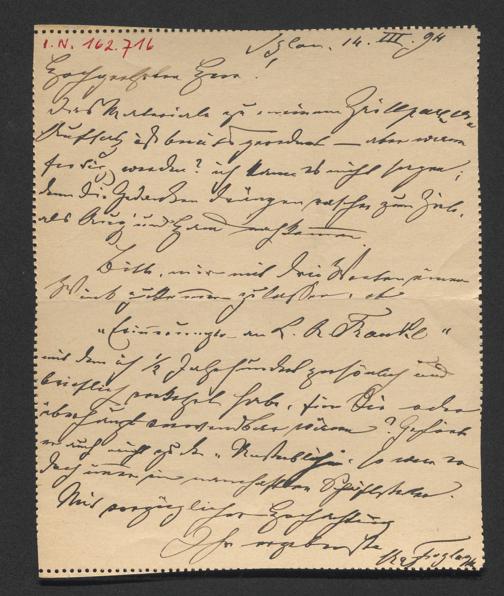 I.N. 162.716
Iglau, 14. III. 94
Hochgeehrter Herr!
Das Materiale zu meinem Grillparzer-
Aufsatz ist bereits geordnet — aber wann
fertig werden? ich kann es nicht sagen;
denn die Gedanken drängen rascher zum Ziele,
als Aug' und Hand nachkommen.
Bitte, mir mit drei Worten einen
Wink zukommen zu lassen, ob
„Erinnerungen an L. A. Frankl"
mit dem ich ½ Jahrhundert persönlich und
brieflich verkehrt habe, für Sie oder
überhaupt verwendbar wären? Gehört
er auch nicht zu den „Unsterblichen", so war er
doch immer ein namhafter Schriftsteller.
Mit vorzüglicher Hochachtung
Ihr ergebenster